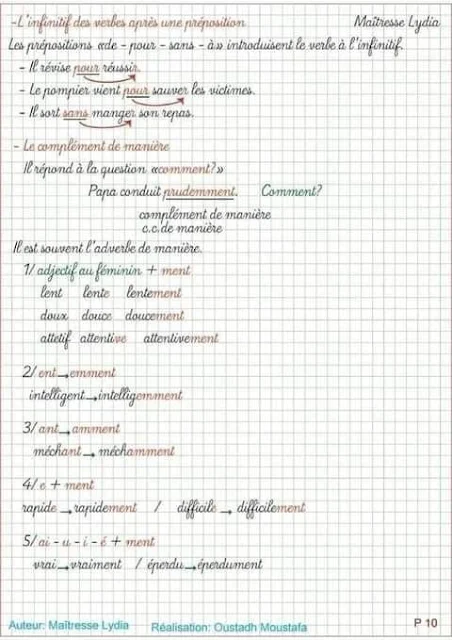 -L'infinitif des verbes après une préposition Maîtresse Lydia
Les prépositions «de - pour - sans - à» introduisent le verbe à l'infinitif.
- Il révise pour réussir.
- Le pompier vient pour sauver les victimes.
- Il sort sans manger son repas.
- Le complément de manière
Il répond à la question «comment?»
Papa conduit prudemment. Comment?
complément de manière
c.c. de manière
Il est souvent l'adverbe de manière.
1/ adjectif au féminin + ment
lent lente lentement
doux douce doucement
attetif attentive attentivement
2/ ent→emment
intelligent→intelligemment
3/ ant→amment
méchant→méchamment
4/ e + ment
rapide→rapidement / difficile→difficilement
5/ ai - u - i - é + ment
vrai→vraiment / éperdu→éperdument
Auteur: Maîtresse Lydia Réalisation: Oustadh Moustafa P 10